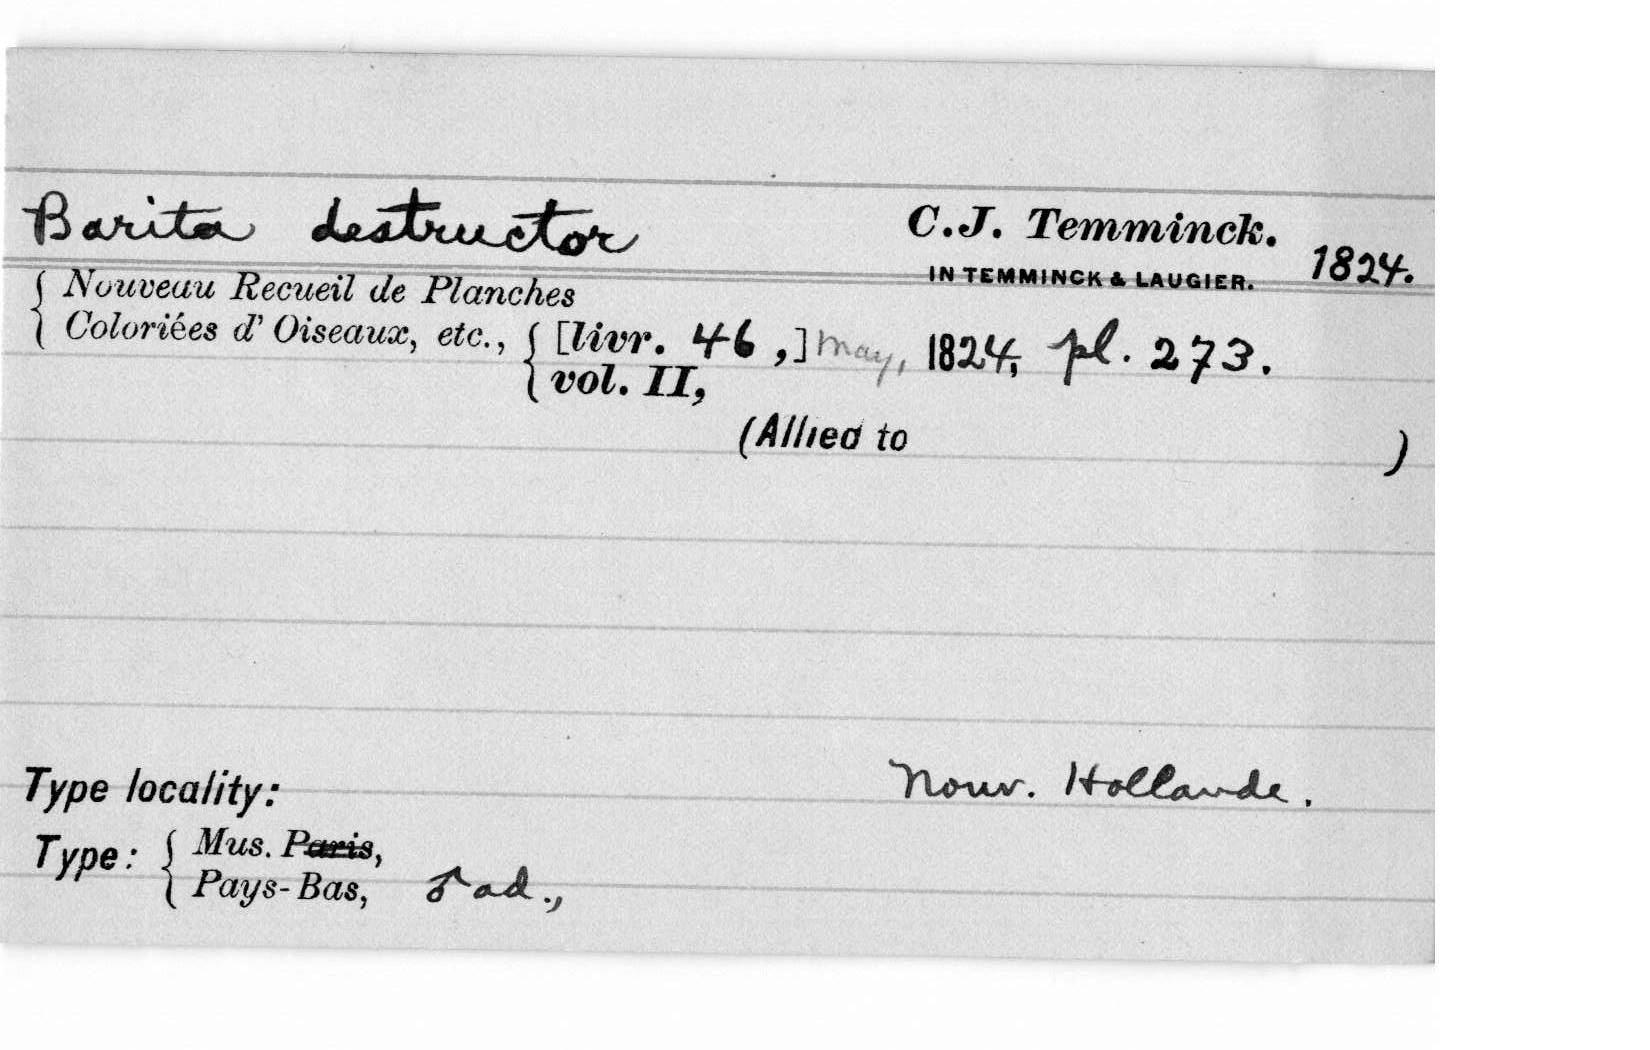 Barita destructor C.J. Temminck.
IN TEMMINCK & LAUGIER. 1824.
{ Nouveau Recueil de Planches
{ Coloriées d' Oiseaux, etc., { [livr. 46 ,] may, 1824, pl. 273.
{ vol. II,
(Allied to )
Type locality: Nouv. Hollande.
Type: { Mus. Paris,
{ Pays-Bas, ♂ ad.,